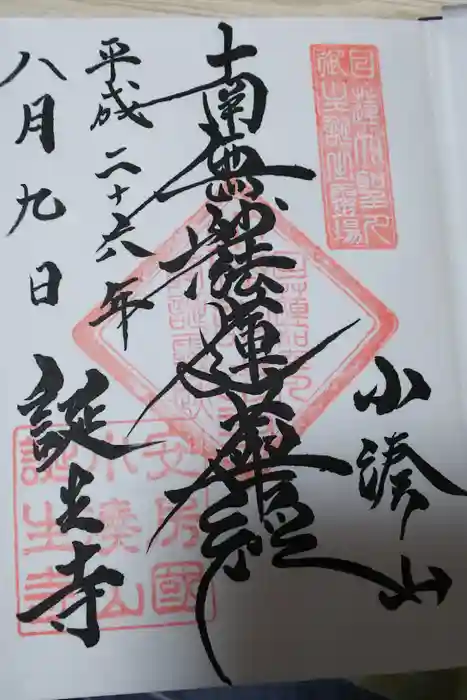 小湊山
南無妙法蓮華経
平成二十六年
八月九日
誕生寺
安房國
小湊山
誕生寺